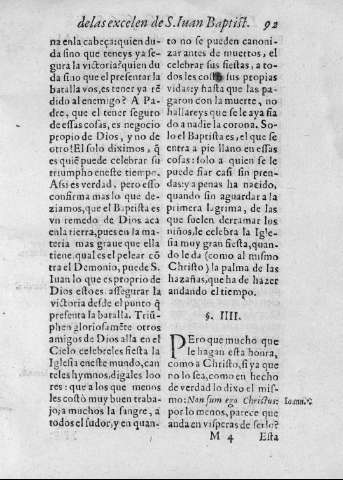 delas excelen de S. Iuan Baptist. 92
na enla cabeça: quien du-
da sino que teneys ya se-
gura la victoria? quien du
da sino que el presentar la
batalla vos, es tener ya rē
dido al enemigo? A Pa-
dre, que el tener seguro
de essas cosas, es negocio
propio de Dios, y no de
otro! El solo diximos, q̄
es quiē puede celebrar su
triumpho eneste tiempo.
Assi es verdad, pero esso
confirma mas lo que de-
ziamos, que el Baptista es
vn remedo de Dios acá
enla tierra, pues en la ma-
teria mas graue que ella
tiene, qual es el pelear cō
tra el Demonio, puede S.
Iuan lo que es proprio de
Dios esto es. assegurar la
victoria desde el punto q̄
presenta la batalla. Triū-
phen gloriosamēte otros
amigos de Dios alla en el
Cielo celebreles fiesta la
Iglesia eneste mundo, can
teles hymnos, digales loo
res: que a los que menos
les costò muy buen traba-
jo; a muchos la sangre, a
todos el sudor, y en quan-
to no se pueden canoni-
zar antes de muertos, el
celebrar sus fiestas, a to-
dos les costò sus propias
vidas: y hasta que las pa-
garon con la muerte, no
hallareys que se le aya fia
do a nadie la corona. So-
lo el Baptista es, el que se
entra a pie llano en essas
cosas: solo a quien se le
puede fiar casi sin pren-
das: y a penas ha nacido,
quando sin aguardar a la
primera lagrima, de las
que suelen derramar los
niños, le celebra la Igle-
sia muy gran fiesta, quan-
do le da (como al mismo
Christo) la palma de las
hazañas, que ha de hazer
andando el tiempo.
§. IIII.
PEro que mucho que
le hagan esta honra,
como a Christo, si ya que
no lo sea, como en hecho
de verdad lo dixo el mis-
mo: Non sum ego Christus:
por lo menos, parece que
anda en visperas de serlo?
M 4 Esta